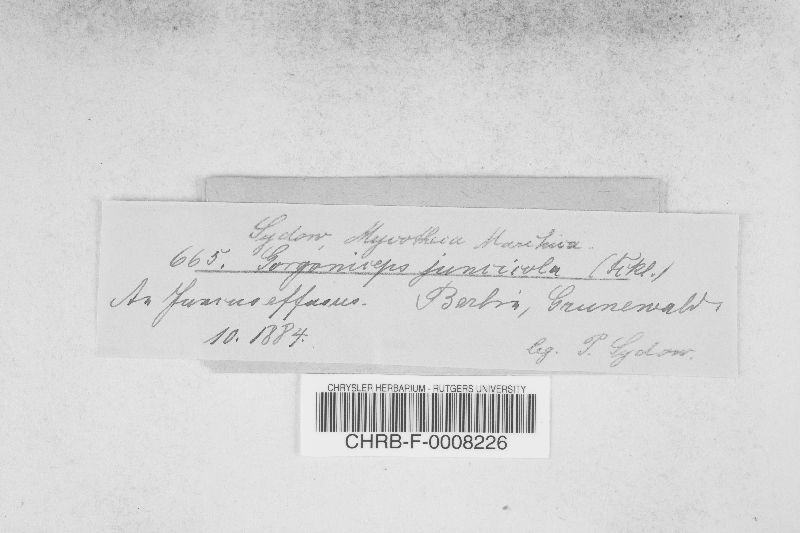 Sydow, Mycotheca Marchica.
665. Gorgoniceps juncicola (Fckl.)
An Juncus effusus. Berlin, Grunewald.
10. 1884.
leg. P. Sydow.
CHRYSLER HERBARIUM - RUTGERS UNIVERSITY
CHRB-F-0008226